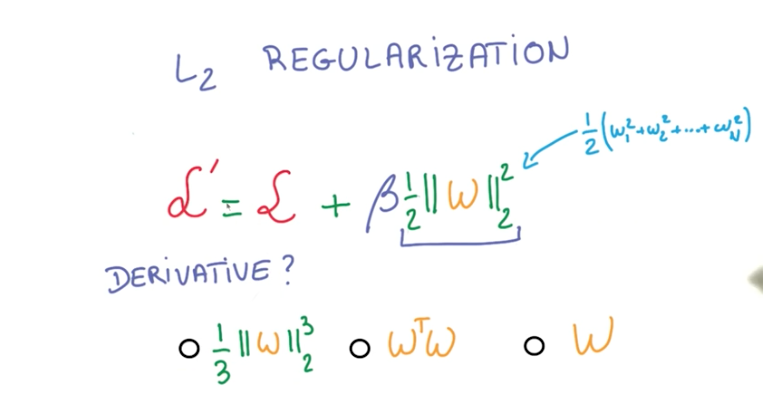 L₂ REGULARIZATION
½(w₁²+w₂²+...+w_N²)
ℒ' = ℒ + β ½ ||w||₂²
DERIVATIVE?
○ ⅓ ||w||₂³ ○ wᵀw ○ w